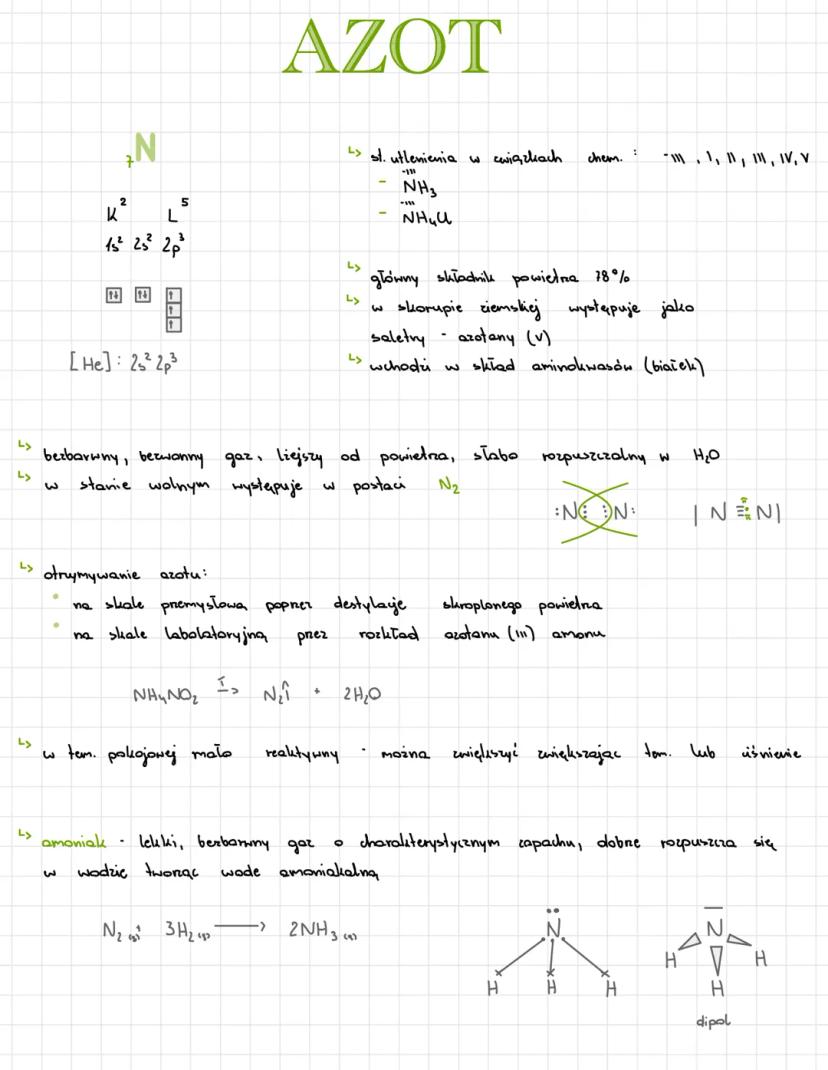 AZOT
₇N
K² L⁵
1s² 2s² 2p³
[He]: 2s² 2p³
↳ st. utlenienia w związkach chem. : -III, I, II, III, IV, V
-III
- NH₃
-III
- NH₄Cl
↳ główny składnik powietrza 78%
↳ w skorupie ziemskiej występuje jako
saletry - azotany (V)
↳ wchodzi w skład aminokwasów (białek)
↳ bezbarwny, bezwonny gaz, lżejszy od powietrza, słabo rozpuszczalny w H₂O
↳ w stanie wolnym występuje w postaci N₂
:N⋮ ⋮N: |N≡N|
↳ otrzymywanie azotu:
• na skale przemysłową poprzez destylacje skroplonego powietrza
• na skale labolatoryjną przez rozkład azotanu (III) amonu
NH₄NO₂ T→ N₂↑ + 2H₂O
↳ w tem. pokojowej mało reaktywny - można zwiększyć zwiększając tem. lub ciśnienie
↳ amoniak - lekki, bezbarwny gaz o charakterystycznym zapachu, dobrze rozpuszcza się
w wodzie tworząc wode amoniakalną
N₂ (g) + 3H₂ (g) ⟶ 2NH₃ (g)
N N
H H H H H H
dipol